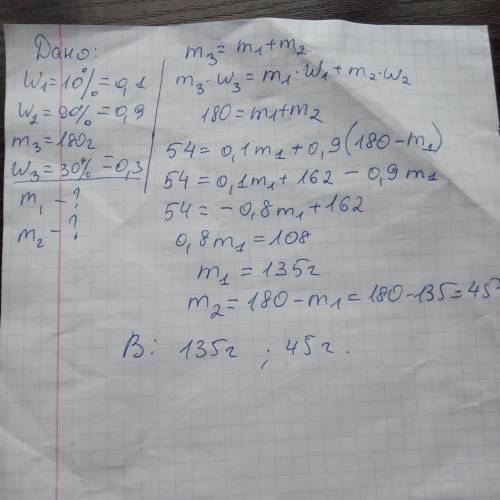 Дано:
W₁=10%=0,1
W₂=90%=0,9
m₃=180г
W₃=30%=0,3
m₁ - ?
m₂ - ?
m₃ = m₁+m₂
m₃·W₃ = m₁·W₁+m₂·W₂
180 = m₁+m₂
54 = 0,1m₁ + 0,9(180-m₁)
54 = 0,1m₁ + 162 - 0,9m₁
54 = -0,8m₁+162
0,8m₁ = 108
m₁ = 135г
m₂ = 180-m₁ = 180-135=45г
В: 135г ; 45г.